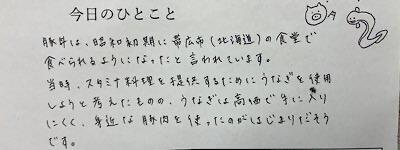 今日のひとこと
豚丼は、昭和初期に帯広市(北海道)の食堂で
食べられるようになったと言われています。
当時、スタミナ料理を提供するためにうなぎを使用
しようと考えたものの、うなぎは高価で手に入り
にくく、身近な豚肉を使ったのがはじまりだそう
です。